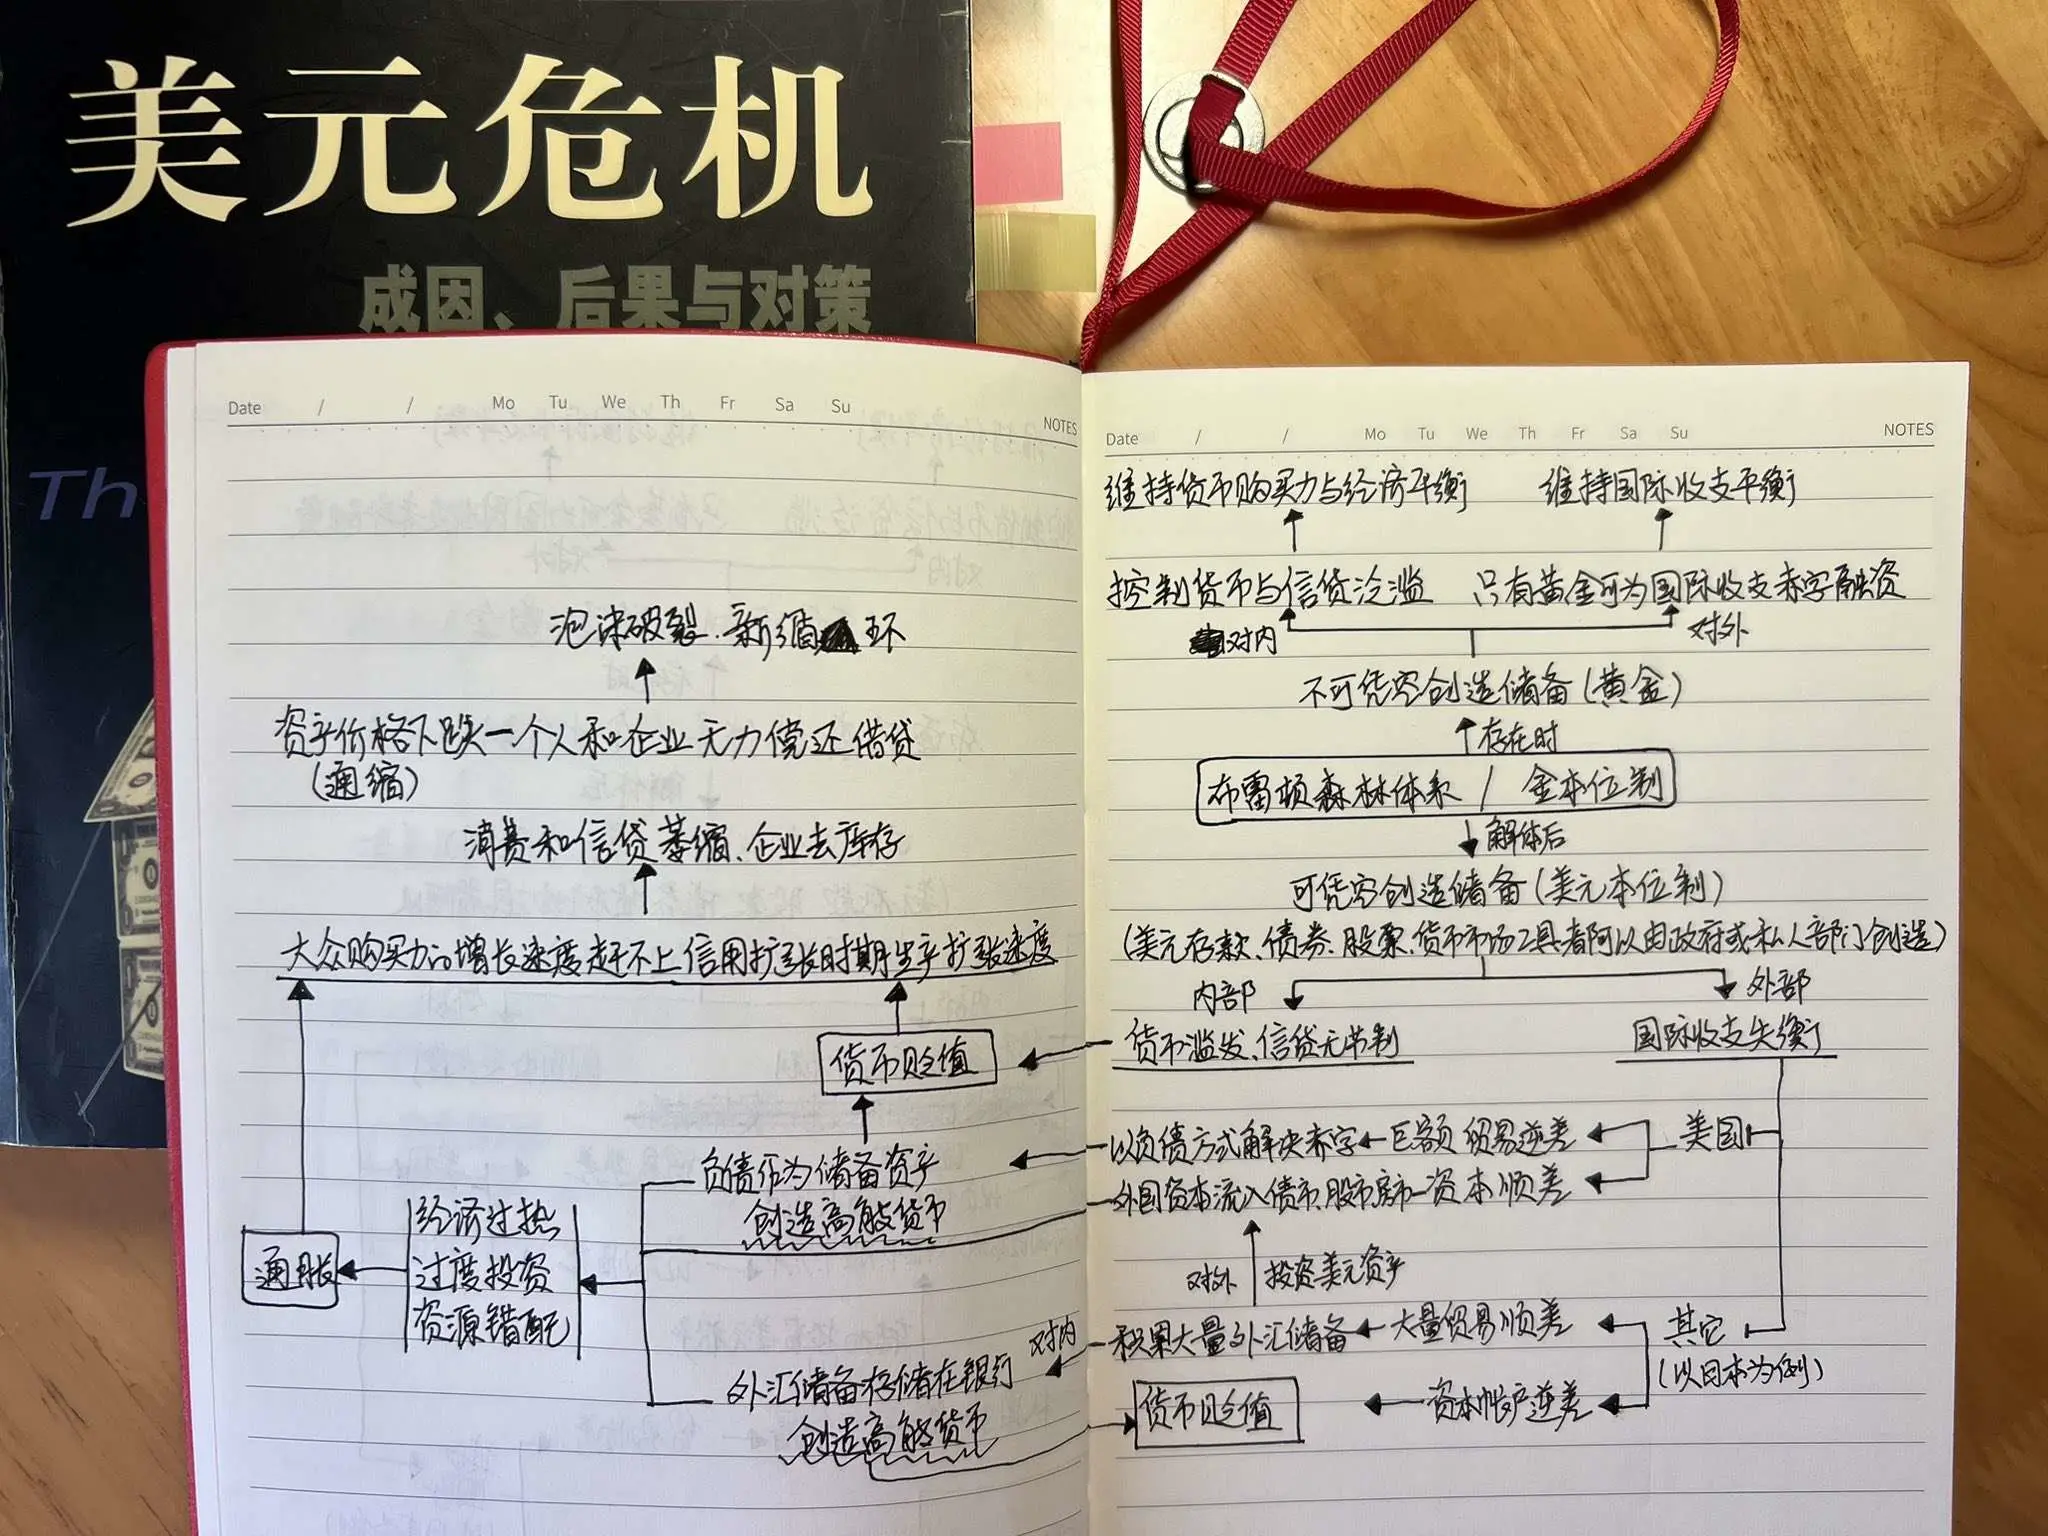 美元危机
成因、后果与对策
Th
Date / / Mo Tu We Th Fr Sa Su NOTES
泡沫破裂、新循环
资产价格下跌—个人和企业无力偿还借贷
(通缩)
消费和信贷萎缩、企业去库存
大众购买力的增长速度赶不上信用扩张时期生产扩张速度
货币贬值
负债作为储备资产
创造高能货币
经济过热
过度投资
资源错配
通胀
外汇储备存储在银行
创造高能货币
Date / / Mo Tu We Th Fr Sa Su NOTES
维持货币购买力与经济平衡 维持国际收支平衡
控制货币与信贷泛滥 只有黄金可为国际收支赤字融资
对内 对外
不可凭空创造储备(黄金)
存在时
布雷顿森林体系 / 金本位制
解体后
可凭空创造储备(美元本位制)
(美元存款、债券、股票、货币市场工具者阿以由政府或私人部门创造)
内部 外部
货币滥发、信贷无节制 国际收支失衡
以负债方式解决赤字 巨额贸易逆差 美国
外国资本流入债市、股市房市—资本顺差
对外 投资美元资产
对内 积累大量外汇储备 大量贸易顺差 其它
(以日本为例)
货币贬值 资本帐户逆差